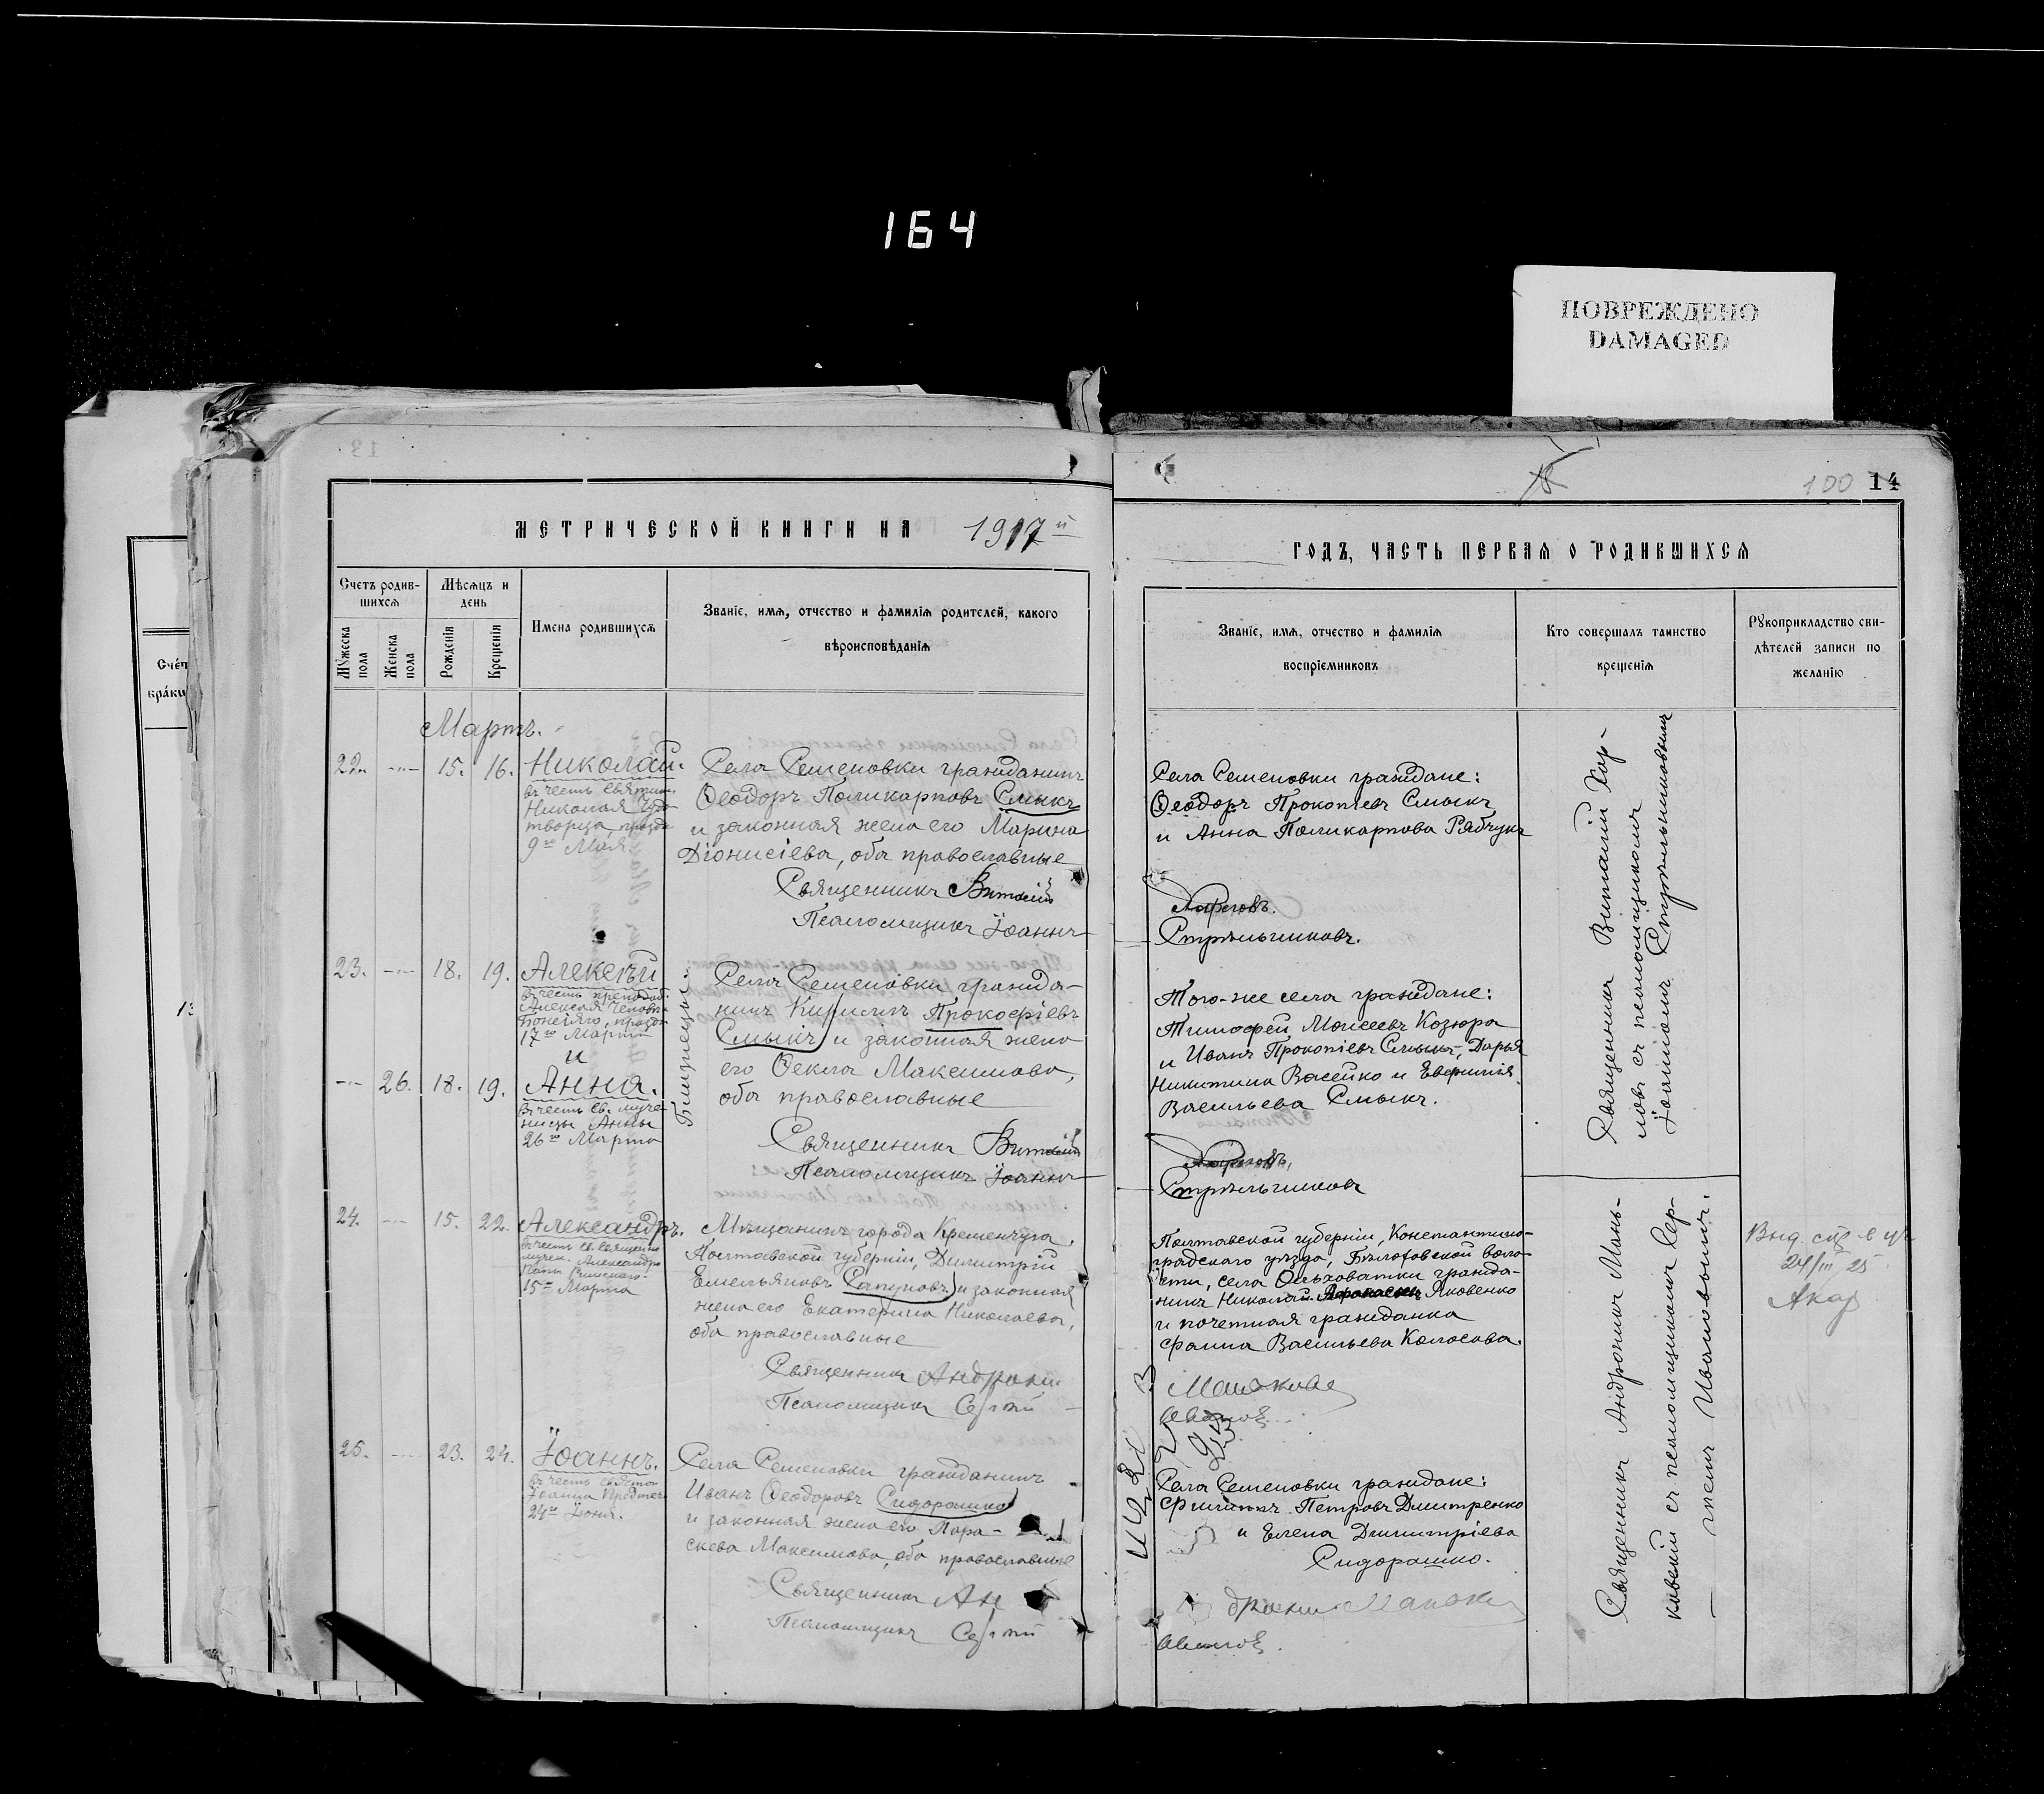 164
ПОВРЕЖДЕНО
DAMAGED
МЕТРИЧЕСКОЙ КНИГИ НА 1917й
Счетъ родив-
шихся
Мѣсяцъ и
день
Имена родившихся
Званіе, имя, отчество и фамилія родителей, какого
вѣроисповѣданія
Мужеска пола
Женска пола
Рожденія
Крещенія
Мартъ.
22. -"- 15. 16. Николай.
въ честь Святит.
Николая Чудо-
творца, праздн.
9го Мая.
Села Семеновки гражданинъ
Ѳеодоръ Поликарповъ Смыкъ
и законная жена его Марина
Діонисіева, оба православные
Священникъ Виталій
Псаломщикъ Іоаннъ
23. -"- 18. 19. Алексѣй
въ честь преподоб.
Алексія человѣка
Божія, праздн.
17го Марта
и
-"- 26. 18. 19. Анна.
въ честь св. муче-
ницы Анны
26го Марта
Близнецы.
Села Семеновки гражда-
нинъ Кириллъ Прокофіевъ
Смыкъ и законная жена
его Ѳекла Максимова,
оба православные
Священникъ Виталій
Псаломщикъ Іоаннъ
24. -"- 15. 22. Александръ.
въ честь св. священно
мучен. Александра
Папы Римскаго
15го Марта
Мѣщанинъ города Кременчуга,
Полтавской губерніи, Димитрій
Емельяновъ Сапуновъ и законная
жена его Екатерина Николаева,
оба православные
Священникъ Андрони
Псаломщикъ Сергій
25. -"- 23. 24. Іоаннъ.
въ честь святого
Іоанна Предтечи
24го Іюня.
Села Семеновки гражданинъ
Иванъ Ѳеодоровъ Сидорашко
и законная жена его Пара-
скева Максимова, оба православные
Священникъ Ан
Псаломщикъ Сергій
18
100 14
ГОДЪ, ЧАСТЬ ПЕРВАЯ О РОДИВШИХСЯ
Званіе, имя, отчество и фамилія
воспріемниковъ
Кто совершалъ таинство
крещенія
Рукоприкладство сви-
дѣтелей записи по
желанію
Села Семеновки граждане:
Ѳеодоръ Прокопіевъ Смыкъ
и Анна Поликарпова Рябчукъ
Стрѣльниковъ.
Того-же села граждане:
Тимофей Моисеевъ Козюра
и Иванъ Прокопіевъ Смыкъ, Дарья
Никитина Васейко и Евфимія
Васильева Смыкъ.
Стрѣльниковъ
Священникъ Виталій Хор-
ловъ съ псаломщикомъ
Іоанномъ Стрѣльниковымъ
Полтавской губерніи, Константино-
градскаго уѣзда, воло-
сти, села Ольховатки гражда-
нинъ Николай Яковенко
и почетная гражданка
Фаина Васильева Колосова.
Маньковс
Иванов
Села Семеновки граждане:
Филиппъ Петровъ Дмитренко
и Елена Димитріева
Сидорашко.
дрони Маньк
Иванов.
Священникъ Андроникъ Мань-
ковскій съ псаломщикомъ Сер-
гіемъ Ивановымъ.
Выд.
24/III 25